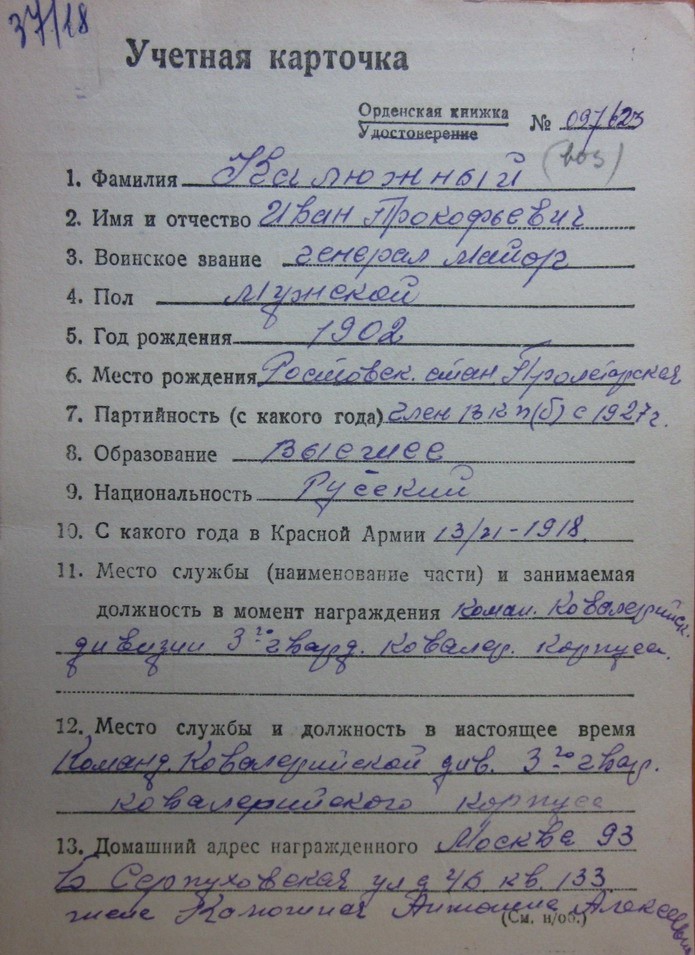 37/18
Учетная карточка
Орденская книжка
Удостоверение № 097623
1. Фамилия Калюжный
2. Имя и отчество Иван Прокофьевич
3. Воинское звание генерал майор
4. Пол мужской
5. Год рождения 1902
6. Место рождения Ростовск. стан Пролетарская
7. Партийность (с какого года) член ВКП(б) с 1927 г.
8. Образование высшее
9. Национальность Русский
10. С какого года в Красной Армии 1918
11. Место службы (наименование части) и занимаемая
должность в момент награждения Коман. Ковалерийск.
дивизии 3го гвард. Ковалер. корпуса.
12. Место службы и должность в настоящее время
Команд. Ковалерийской див. 3го гвар.
ковалерийского корпуса
13. Домашний адрес награжденного Москва 93
Б Серпуховская ул д 46 кв. 133
Антонина Алексеевна
(См. н/об.)